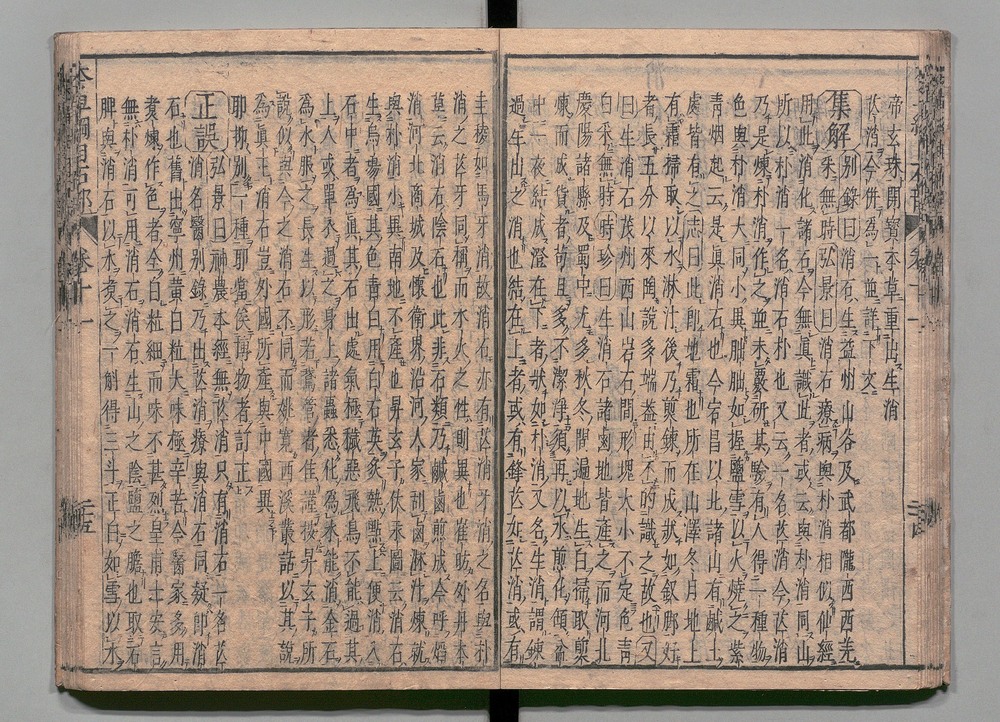 帝玄珠開寶本草重出生消
芒消今併為一並詳下文
集解別錄曰消石生益州山谷及武都隴西西羌
采無時弘景曰消石療病與朴消相似仙經
用此消化諸石今無眞識此者或云與朴消同山
所以朴消一名消石朴也又云一名芒消今芒消
乃是煉朴消作之並未覈研其驗有人得一種物
色與朴消大同小異朏朏如握鹽雪以火燒之紫
青烟起云是眞消石也今宕昌以此諸山有鹹土
處皆有之志曰此即地霜也所在山澤冬月地上
有霜掃取以水淋汁後乃煎煉而成狀如釵脚好
者長五分以來陶說多端蓋由不的識之故也又
曰生消石茂州西山岩石間形塊大小不定色青
白采無時時珍曰生消石諸鹵地皆產之而河北
慶陽諸縣及蜀中尤多秋冬間遍地生白掃取煎
煉而成貨者苟且多不潔淨須再以水煎化傾盆
中一夜結成澄在下者狀如朴消又名生消謂煉
過生出之消也結在上者或有鋒芒如芒消或有
圭棱如馬牙消故消石亦有芒消牙消之名與朴
消之芒牙同稱而水火之性則異也崔昉外丹本
草云消石陰石也此非石類乃鹹鹵煎成今呼焰
消河北商城及懷衛界沿河人家刮鹵淋汁煉就
與朴消小異南地不產也昇玄子伏汞圖云消石
生烏場國其色青白用白石英炙熱點上便消入
石中者為眞其石出處氣極穢惡飛鳥不能過其
上人或單衣過之身上諸蟲悉化為水能消金石
為水服之長生以形若鵞管者佳謹按昇玄子所
說似與今之消石不同而姚寬西溪叢話以其說
為眞正消石豈外國所產與中國異
耶抑別一種耶當俟博物者訂正
正誤弘景曰神農本經無芒消只有消石一名芒
消名醫別錄乃出芒消療與消石同疑即消
石也舊出寧州黃白粒大味極辛苦今醫家多用
煮煉作色者全白粒細而味不甚烈皇甫士安言
無朴消可用消石消石生山之陰鹽之膽也取石
脾與消石以水煮之一斛得三斗正白如雪以水
本草綱目石部 卷十一 二五